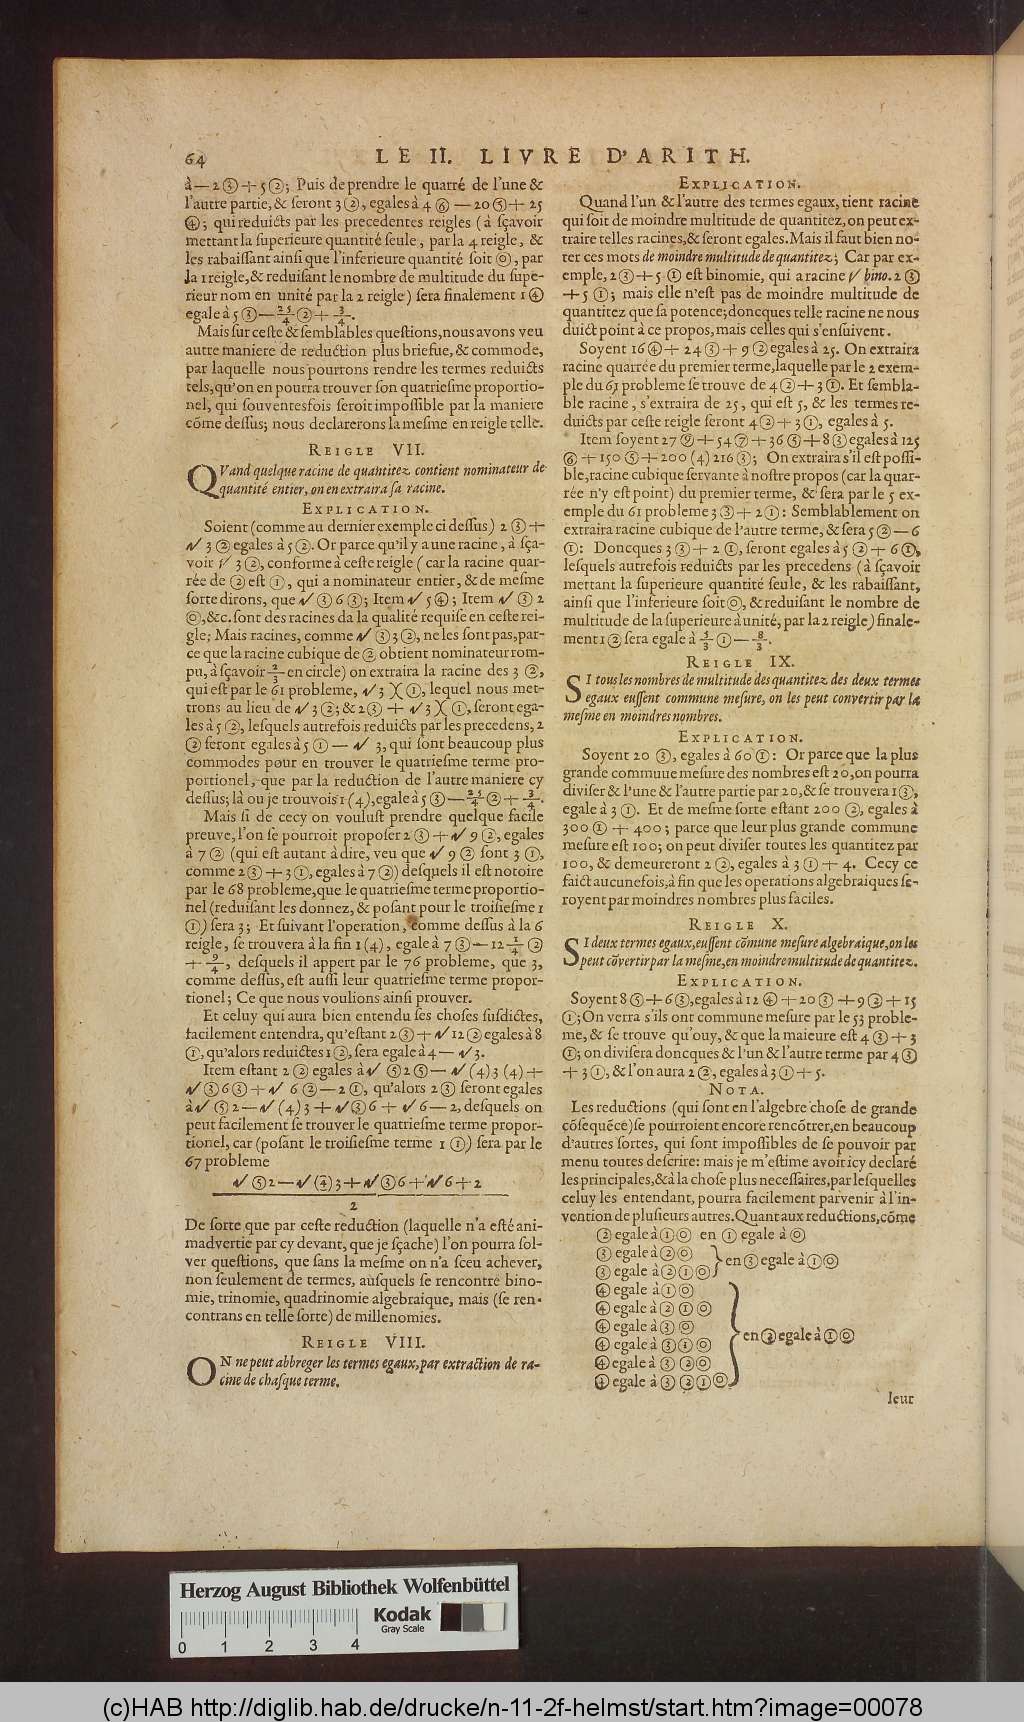 64
LE II. LIVRE D'ARITH.
à — 2 ③ + 5 ②; Puis de prendre le quarré de l'une &
l'autre partie, & ſeront 3 ②, egales à 4 ⑥ — 20 ⑤ + 25
④; qui reduicts par les precedentes reigles (à ſçavoir
mettant la ſuperieure quantité ſeule, par la 4 reigle, &
les rabaiſſant ainſi que l'inferieure quantité ſoit ⓪, par
la 1 reigle, & reduiſant le nombre de multitude du ſupe-
rieur nom en unité par la 2 reigle) ſera finalement 1 ④
egale à 5 ③ — 25/4 ② + 3/4.
Mais ſur ceſte & ſemblables queſtions, nous avons veu
autre maniere de reduction plus briefue, & commode,
par laquelle nous pourrons rendre les termes reduicts
tels, qu'on en pourra trouver ſon quatrieſme proportio-
nel, qui ſouventesfois ſeroit impoſſible par la maniere
cõme deſſus; nous declarerons la meſme en reigle telle.
REIGLE VII.
QVand quelque racine de quantitez contient nominateur de
quantité entier, on en extraira ſa racine.
EXPLICATION.
Soient (comme au dernier exemple ci deſſus) 2 ③ +
√ 3 ② egales à 5 ②. Or parce qu'il y a une racine, à ſça-
voir √ 3 ②, conforme à ceſte reigle (car la racine quar-
rée de ② eſt ①, qui a nominateur entier, & de meſme
ſorte dirons, que √ ③ 6 ③; Item √ 5 ④; Item √ ③ 2
⓪, &c. ſont des racines da la qualité requiſe en ceſte rei-
gle; Mais racines, comme √ ③ 3 ②, ne les ſont pas, par-
ce que la racine cubique de ② obtient nominateur rom-
pu, à ſçavoir 2/3 en circle) on extraira la racine des 3 ②,
qui eſt par le 61 probleme, √ 3 )( ①, lequel nous met-
trons au lieu de √ 3 ②; & 2 ③ + √ 3 )( ①, ſeront ega-
les à 5 ②, leſquels autrefois reduicts par les precedens, 2
② ſeront egales à 5 ① — √ 3, qui ſont beaucoup plus
commodes pour en trouver le quatrieſme terme pro-
portionel, que par la reduction de l'autre maniere cy
deſſus; là ou je trouvois 1 (4), egale à 5 ③ — 25/4 ② + 3/4.
Mais ſi de cecy on vouluſt prendre quelque facile
preuve, l'on ſe pourroit propoſer 2 ③ + √ 9 ②, egales
à 7 ② (qui eſt autant à dire, veu que √ 9 ② ſont 3 ①,
comme 2 ③ + 3 ①, egales à 7 ②) deſquels il eſt notoire
par le 68 probleme, que le quatrieſme terme proportio-
nel (reduiſant les donnez, & poſant pour le troiſieſme 1
①) ſera 3; Et ſuivant l'operation, comme deſſus à la 6
reigle, ſe trouvera à la fin 1 (4), egale à 7 ③ — 12 1/4 ②
+ 9/4, deſquels il appert par le 76 probleme, que 3,
comme deſſus, eſt auſſi leur quatrieſme terme propor-
tionel; Ce que nous voulions ainſi prouver.
Et celuy qui aura bien entendu ſes choſes ſuſdictes,
facilement entendra, qu'eſtant 2 ③ + √ 12 ② egales à 8
①, qu'alors reduictes 1 ②, ſera egale à 4 — √ 3.
Item eſtant 2 ② egales à √ ⑤ 2 ⑤ — √ (4) 3 (4) +
√ ③ 6 ③ + √ 6 ② — 2 ①, qu'alors 2 ③ ſeront egales
à √ ⑤ 2 — √ (4) 3 + √ ③ 6 + √ 6 — 2, deſquels on
peut facilement ſe trouver le quatrieſme terme propor-
tionel, car (poſant le troiſieſme terme 1 ①) ſera par le
67 probleme
√ ⑤ 2 — √ ④ 3 + √ ③ 6 + √ 6 + 2
2
De ſorte que par ceſte reduction (laquelle n'a eſté ani-
madvertie par cy devant, que je ſçache) l'on pourra ſol-
ver queſtions, que ſans la meſme on n'a ſceu achever,
non ſeulement de termes, auſquels ſe rencontre bino-
mie, trinomie, quadrinomie algebraique, mais (ſe ren-
contrans en telle ſorte) de millenomies.
REIGLE VIII.
ON ne peut abbreger les termes egaux, par extraction de ra-
cine de chaſque terme.
EXPLICATION.
Quand l'un & l'autre des termes egaux, tient racine
qui ſoit de moindre multitude de quantitez, on peut ex-
traire telles racines, & ſeront egales. Mais il faut bien no-
ter ces mots de moindre multitude de quantitez; Car par ex-
emple, 2 ③ + 5 ① eſt binomie, qui a racine √ bino. 2 ③
+ 5 ①; mais elle n'eſt pas de moindre multitude de
quantitez que ſa potence; doncques telle racine ne nous
duict point à ce propos, mais celles qui s'enſuivent.
Soyent 16 ④ + 24 ③ + 9 ② egales à 25. On extraira
racine quarrée du premier terme, laquelle par le 2 exem-
ple du 61 probleme ſe trouve de 4 ② + 3 ①. Et ſembla-
ble racine, s'extraira de 25, qui eſt 5, & les termes re-
duicts par ceſte reigle ſeront 4 ② + 3 ①, egales à 5.
Item ſoyent 27 ⑨ + 54 ⑦ + 36 ⑤ + 8 ③ egales à 125
⑥ + 150 ⑤ + 200 (4) 216 ③; On extraira s'il eſt poſſi-
ble, racine cubique ſervante à noſtre propos (car la quar-
rée n'y eſt point) du premier terme, & ſera par le 5 ex-
emple du 61 probleme 3 ③ + 2 ①: Semblablement on
extraira racine cubique de l'autre terme, & ſera 5 ② — 6
①: Doncques 3 ③ + 2 ①, ſeront egales à 5 ② + 6 ①,
leſquels autrefois reduicts par les precedens (à ſçavoir
mettant la ſuperieure quantité ſeule, & les rabaiſſant,
ainſi que l'inferieure ſoit ⓪, & reduiſant le nombre de
multitude de la ſuperieure à unité, par la 2 reigle) finale-
ment 1 ② ſera egale à 5/3 ① — 8/3.
REIGLE IX.
SI tous les nombres de multitude des quantitez des deux termes
egaux euſſent commune meſure, on les peut convertir par la
meſme en moindres nombres.
EXPLICATION.
Soyent 20 ③, egales à 60 ①: Or parce que la plus
grande commune meſure des nombres eſt 20, on pourra
diviſer & l'une & l'autre partie par 20, & ſe trouvera 1 ③,
egale à 3 ①. Et de meſme ſorte eſtant 200 ②, egales à
300 ① + 400; parce que leur plus grande commune
meſure eſt 100; on peut diviſer toutes les quantitez par
100, & demeureront 2 ②, egales à 3 ① + 4. Cecy ce
faict aucunefois, à fin que les operations algebraiques ſe-
royent par moindres nombres plus faciles.
REIGLE X.
SI deux termes egaux, euſſent cõmune meſure algebraique, on les
peut cõvertir par la meſme, en moindre multitude de quantitez.
EXPLICATION.
Soyent 8 ⑤ + 6 ③, egales à 12 ④ + 20 ③ + 9 ② + 15
①; On verra s'ils ont commune meſure par le 53 proble-
me, & ſe trouve qu'ouy, & que la maieure eſt 4 ③ + 3
①; on diviſera doncques & l'un & l'autre terme par 4 ③
+ 3 ①, & l'on aura 2 ②, egales à 3 ① + 5.
NOTA.
Les reductions (qui ſont en l'algebre choſe de grande
cõſequẽce) ſe pourroient encore rencõtrer, en beaucoup
d'autres ſortes, qui ſont impoſſibles de ſe pouvoir par
menu toutes deſcrire: mais je m'eſtime avoir icy declaré
les principales, & à la choſe plus neceſſaires, par leſquelles
celuy les entendant, pourra facilement parvenir à l'in-
vention de pluſieurs autres. Quant aux reductions, cõme
② egale à ① ⓪ en ① egale à ⓪
③ egale à ② ⓪
③ egale à ② ① ⓪ } en ③ egale à ① ⓪
④ egale à ① ⓪
④ egale à ② ① ⓪
④ egale à ③ ⓪
④ egale à ③ ① ⓪ } en ② egale à ① ⓪
④ egale à ③ ② ⓪
④ egale à ③ ② ① ⓪
leur
Herzog August Bibliothek Wolfenbüttel
Kodak
Gray Scale
0 1 2 3 4
(c)HAB http://diglib.hab.de/drucke/n-11-2f-helmst/start.htm?image=00078